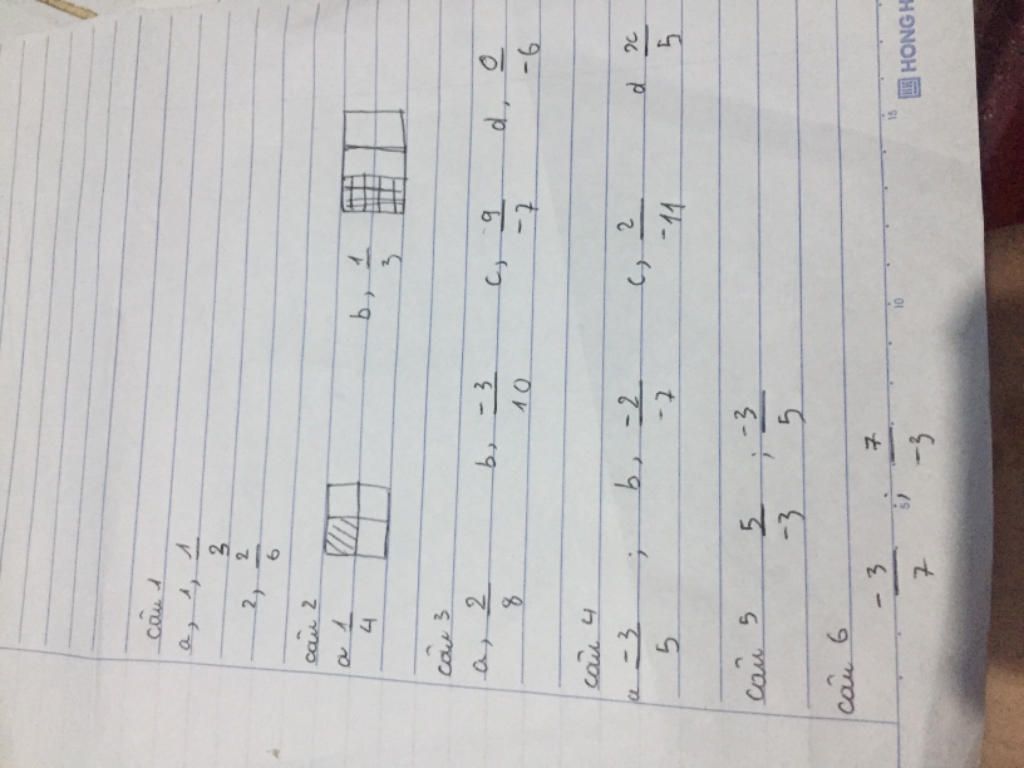 câu 1
a, 1, 1/3
2, 2/6
câu 2
a 1/4 b, 1/3
câu 3
a, 2/8 b, -3/10 c, -9/-7 d, 0/-6
câu 4
a -3/5 ; b, -2/-7 c, 2/-11 d x/5
câu 5 5/-3 ; -3/5
câu 6
-3/7 ; 7/-3
5 10 15
HONG H